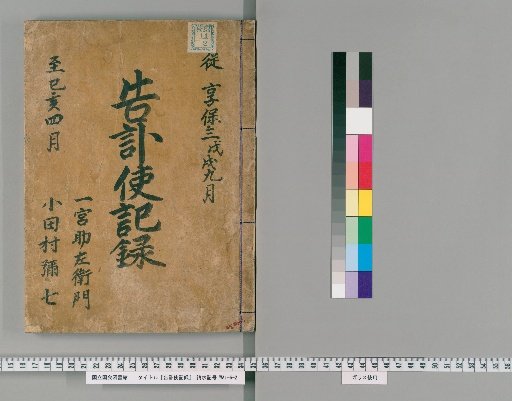 従 享保三戊戌九月
告訃使記録
至己亥四月
一宮助左衛門
小田村彌七